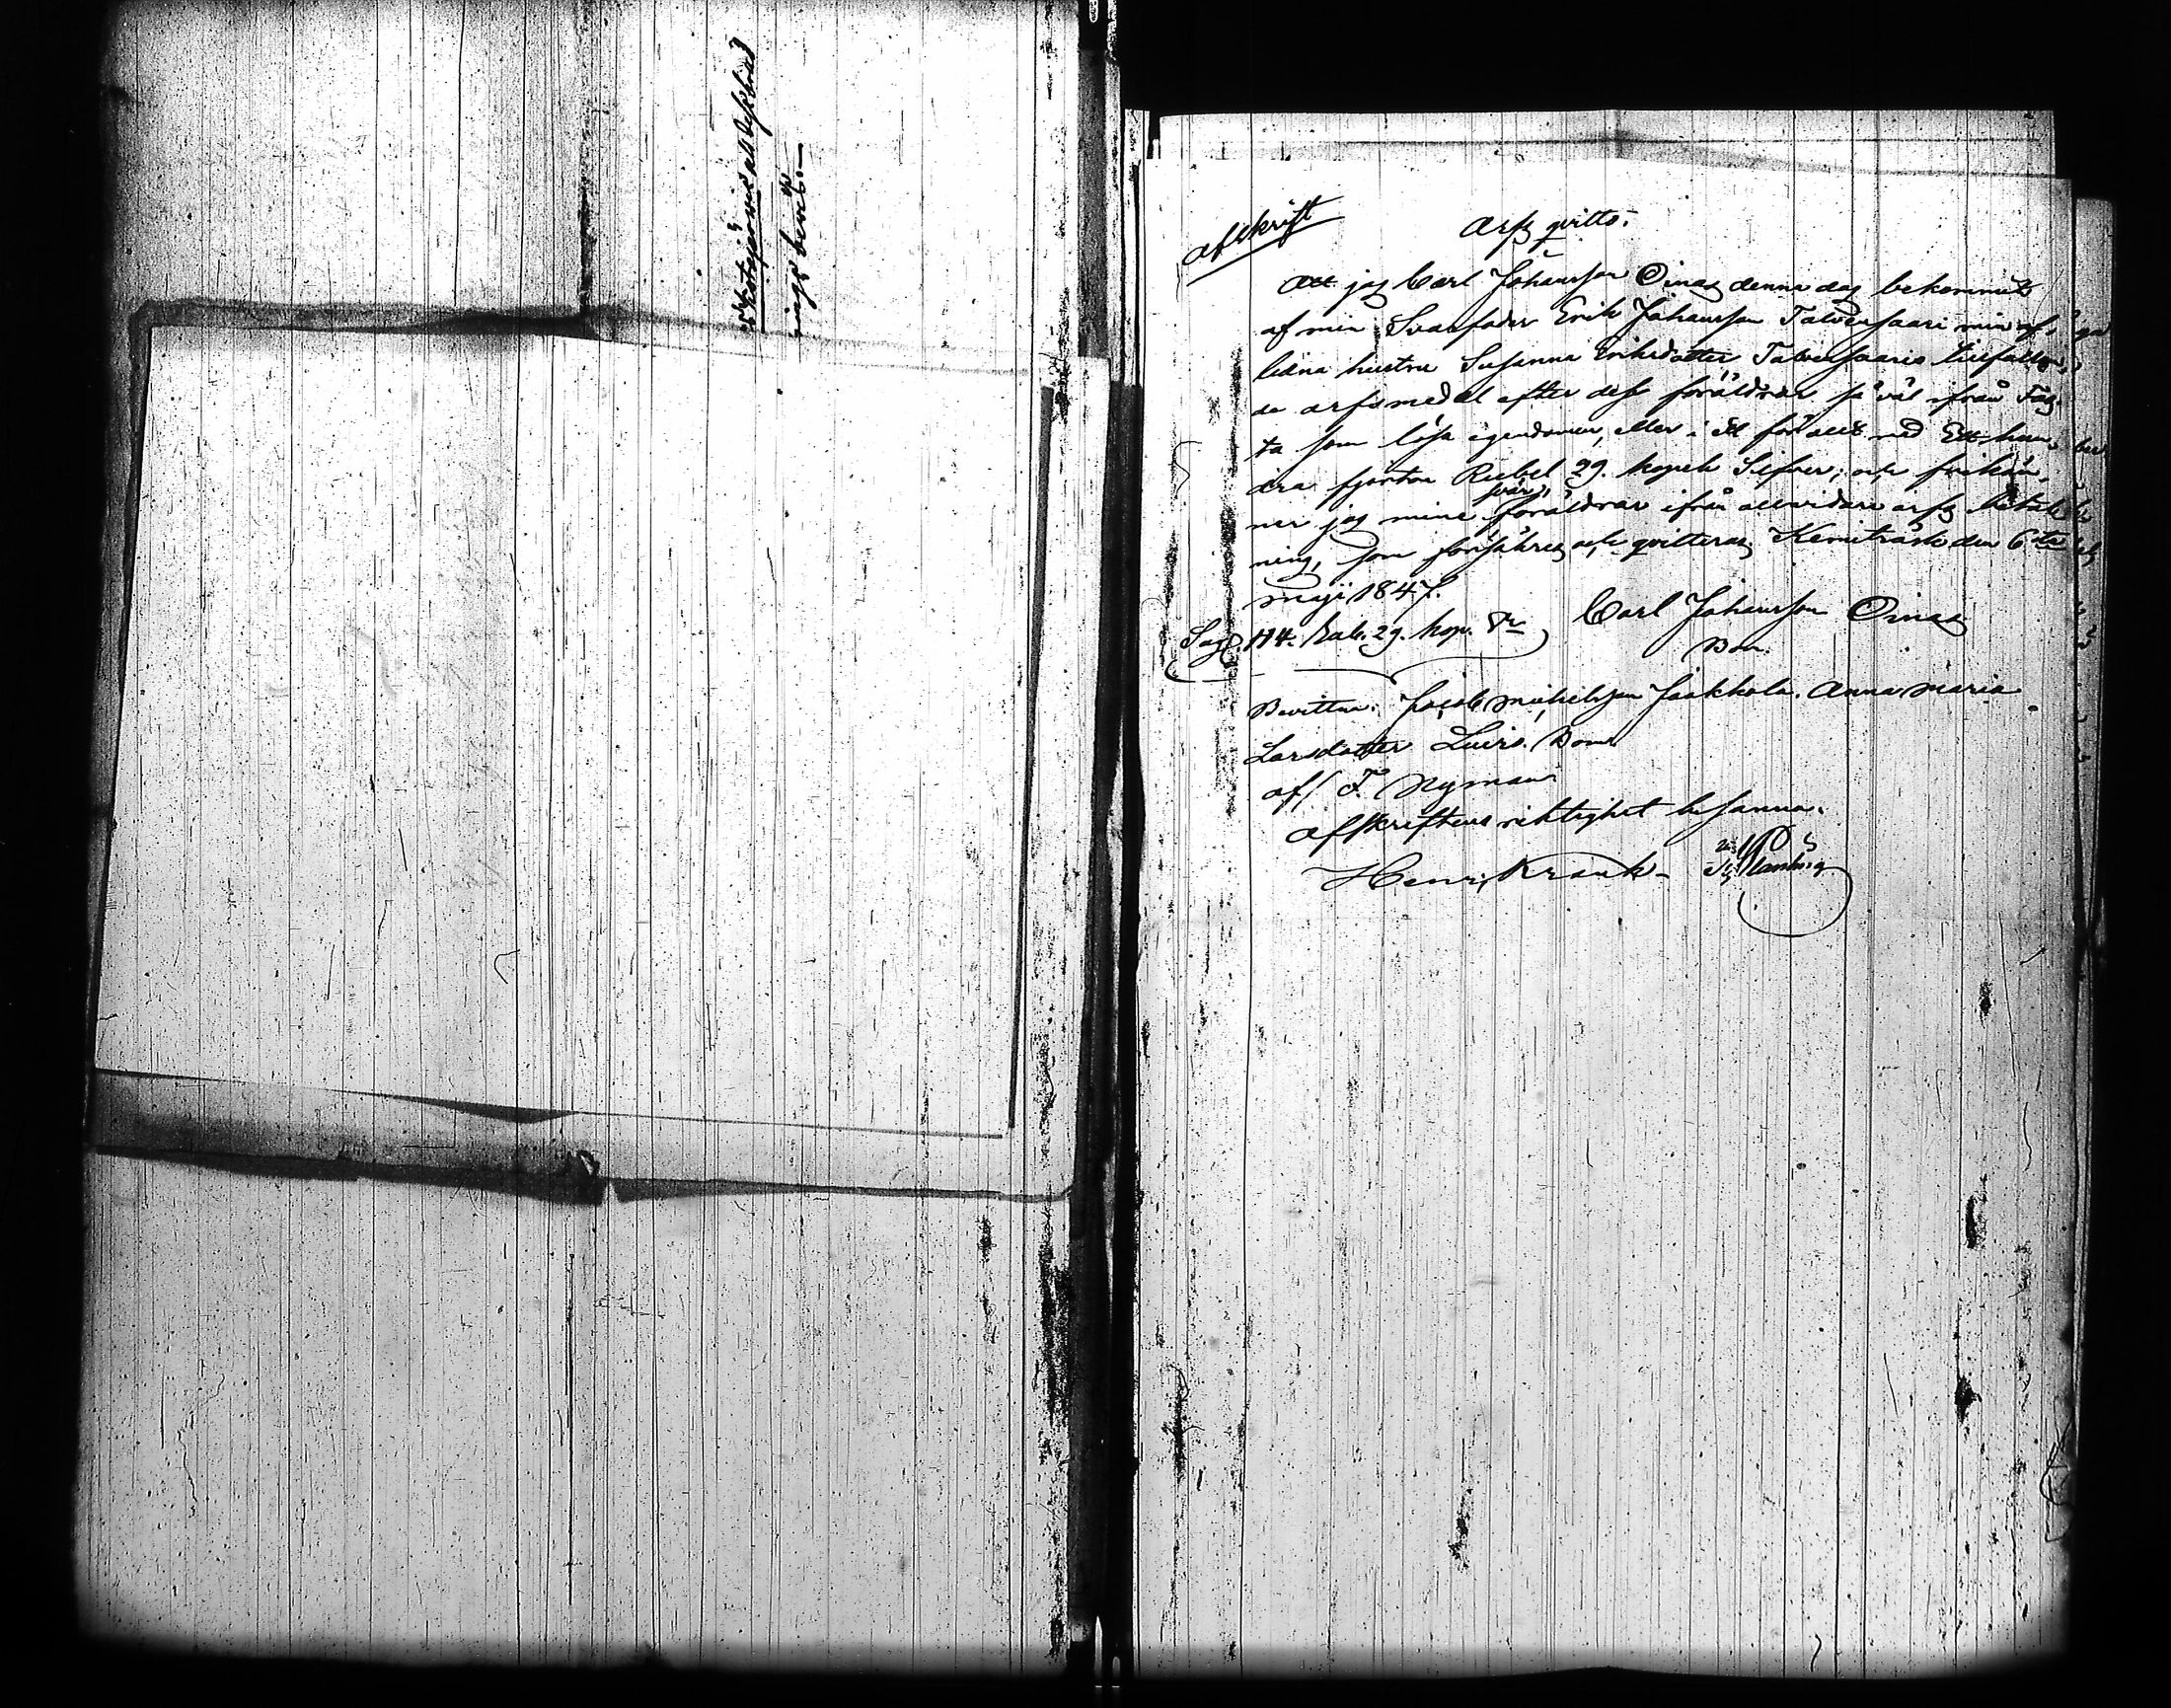 afskrift
Arfs qvitto.
Att jag Carl Johansson Oinas denna dag bekommit
af min Svärfader Erik Johansson Talvensaari min af,,
ledna hustru Susanna Eriksdotter Talvensaaris tillfallan,,
de arfsmedel efter dess föräldrar så väl ifrån Fas,,
ta som lösa egendomen, eller i ett för allt med Ett hun,,
dra fjorton Rubel 29. kopek Silfver; och frikän,,
ner jag mine svär,, föräldrar ifrån all vidare arfs betal,,
ning, som försäkras och qvitteras Kemiträsk den 6te
Maji 1847.
Sags. 114. Rub. 29. kop. Sr
Carl Johansson Oinas
Bon.
Bevittna: Jacob Michelsson Jaakkola. Anna Maria
Larsdotter Luiro. Bom
af/ F. Nyman
Afskriftens riktighet besanna.
Henr. Krank